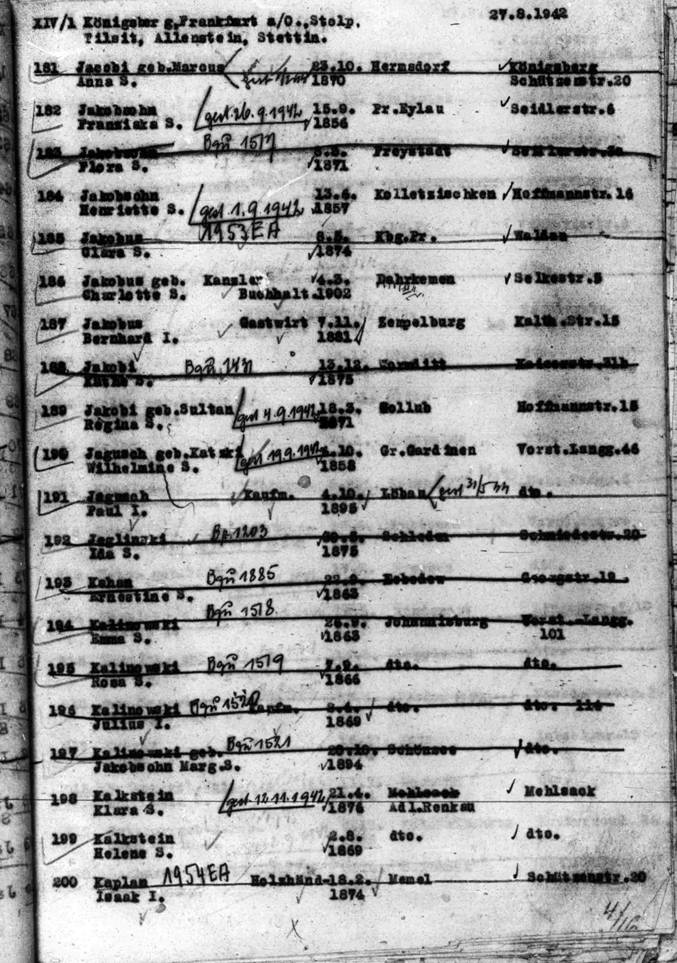 XIV/1 Königsberg, Frankfurt a/O., Stolp, 27.8.1942
Tilsit, Allenstein, Stettin.
181 Jacobi geb.Marcus 23.10. Hermsdorf Königsberg
Anna S. 1870 Schützenstr.20
182 Jakobsohn gest.26.9.1942 15.9. Pr.Eylau Seidlerstr.6
Franziska S. 1856
183 Bgü 1517 Freystadt
Flora S. 1871
184 Jakobsohn 13.6. Kolletzischken Hoffmannstr.16
Henriette S. gest.1.9.1942 1857
185 Jakobus 1953EA Kbg.Pr. Walden
Clara S. 1874
186 Jakobus geb. Kanzler 4.3. Darkemen Selkestr.5
Charlotte S. Buchhalt. 1902
187 Jakobus Gastwirt 7.11. Zempelburg Kalth.Str.15
Bernhard I. 1881
188 Jakobi Bgü 1431 13.12. Wormditt
S. 1875
189 Jakobi geb.Sultan gest 4.9.1942 18.3. Gollub Hoffmannstr.15
Regina S. 1871
190 Jagusch geb. gest 19.9.1942 .10. Gr.Gardinen Vorst.Langg.46
Wilhelmine S. 1858
191 Jagusch Kaufm. 4.10. Löban gest dto.
Paul I. 1895
192 Jaglinski Bg 1203 Schleden Schmiedestr.20
Ida S. 1875
193 Kahan Bgü 1885 Georgstr.
Ernestine S. 1863
194 Kalinowski Bgü 1518 Johannisburg Vorst. Langg.
Emma S. 1863 101
195 Kalinowski Bgü 1519 dto. dto.
Rosa S. 1866
196 Kalinowski Bgü 1520 Kaufm. dto. dto. 114
Julius I. 1869
197 Kalinowski geb. Bgü 1521 Schönsee dto.
Jakobsohn Marg.S. 1894
198 Kalkstein gest 12.11.1942 21.4. Mehlsack Mehlsack
Klara S. 1876 Adl.Renkau
199 Kalkstein 2.8. dto. dto.
Helene S. 1869
200 Kaplan 1954EA Holzhänd- 18.2. Memel Schützenstr.20
Isaak I. 1874